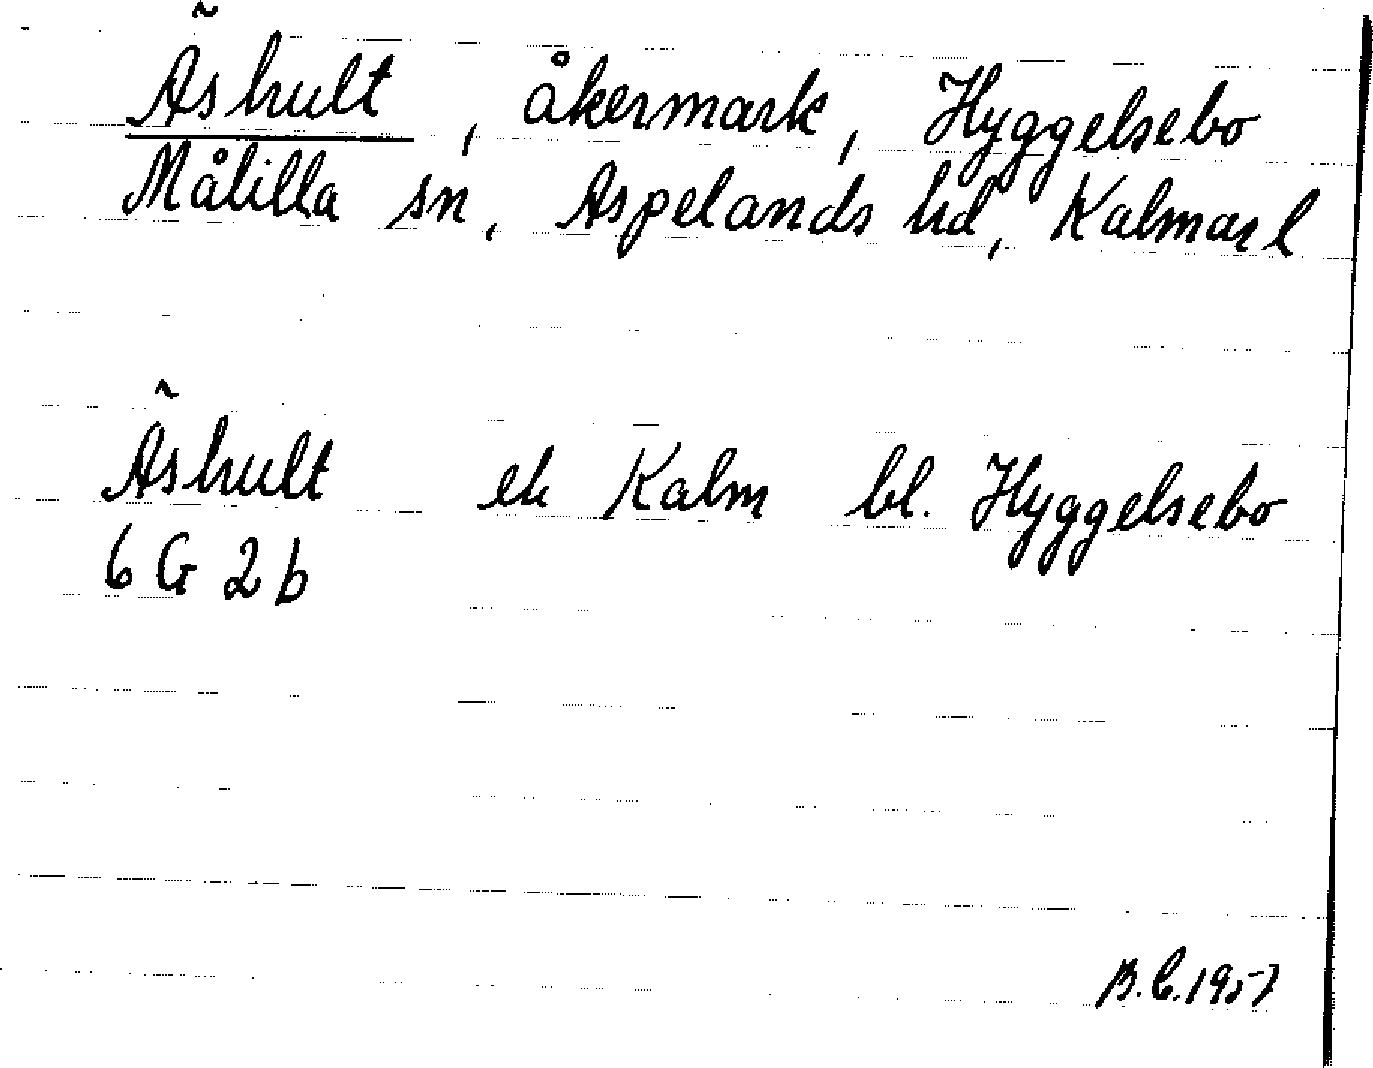 Äshult, åkermark, Hyggelsebo
Målilla sn, Aspelands hd, Kalmar l
Äshult ek Kalm bl. Hyggelsebo
6 G 2 b
B.C. 1957